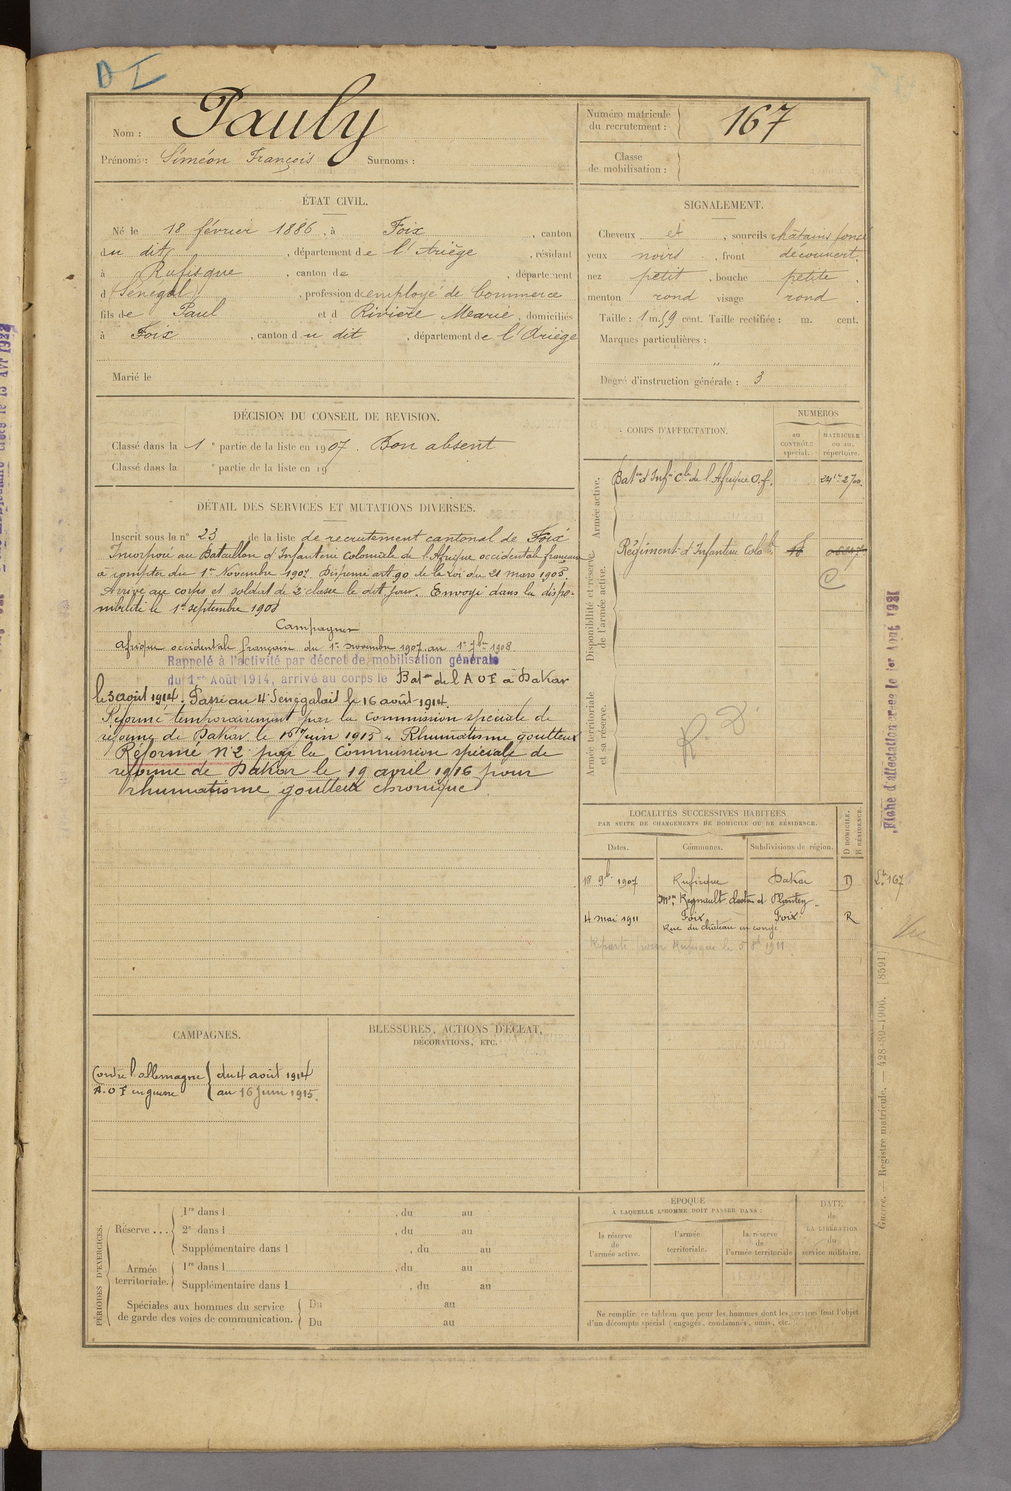 D I
Nom : Pauly
Prénoms : Siméon François Surnoms :
Numéro matricule
du recrutement : 167
Classe
de mobilisation :
ÉTAT CIVIL.
Né le 18 février 1886, à Foix, canton
du dit, département de l'Ariège, résidant
à Rufisque, canton de , département
d (Sénégal), profession d'employé de Commerce
fils de Paul et d Rivière Marie, domiciliés
à Foix, canton du dit, département de l'Ariège
Marié le
SIGNALEMENT.
Cheveux et , sourcils châtains foncé
yeux noirs , front découvert,
nez petit , bouche petite ,
menton rond visage rond .
Taille : 1 m. 59 cent. Taille rectifiée : m. cent.
Marques particulières :
"
Degré d'instruction générale : 3
DÉCISION DU CONSEIL DE REVISION.
Classé dans la 1e partie de la liste en 1907. Bon absent
Classé dans la e partie de la liste en 19
DÉTAIL DES SERVICES ET MUTATIONS DIVERSES.
Inscrit sous le n° 23 de la liste de recrutement cantonal de Foix
Incorporé au Bataillon d'Infanterie Coloniale de l'Afrique occidentale française
à compter du 1er Novembre 1907. Dispensé art 90 de la Loi du 21 mars 1905.
Arrivé au corps et soldat de 2e classe le dit jour. Envoyé dans la dispo-
nibilité le 1er septembre 1908
Campagnes
Afrique occidentale française du 1er novembre 1907 au 1er 7bre 1908
Rappelé à l'activité par décret de mobilisation générale
du 1er Août 1914, arrivé au corps le Baton de l A O F à Dakar
le 3 août 1914. Passé au 4e Sénégalais le 16 août 1914.
Réformé temporairement par la Commission spéciale de
réforme de Dakar le 16 Juin 1915 "Rhumatisme goutteux
Réformé N°2 par la Commission spéciale de
réforme de Dakar le 19 avril 1916 pour
rhumatisme goutteux chronique
CORPS D'AFFECTATION.
NUMÉROS
au
CONTRÔLE
spécial.
MATRICULE
ou au
répertoire.
Armée active.
Baton d'Infie Cle de l'Afrique O.f.
Disponibilité et réserve
de l'armée active.
Régiment d'Infanterie Colole
C
Armée territoriale
et sa réserve.
R. D.
LOCALITÉS SUCCESSIVES HABITÉES
PAR SUITE DE CHANGEMENTS DE DOMICILE OU DE RÉSIDENCE.
Dates. Communes. Subdivisions de région. D DOMICILE. R RÉSIDENCE.
18 9bre 1907 Rufisque Dakar D
4 mai 1911 Foix Foix R
Rue du château en congé
Reparti pour Rufisque le 5 8bre 1911
CAMPAGNES.
Contre l'allemagne du 4 août 1914
A.O.F en guerre au 16 Juin 1915.
BLESSURES, ACTIONS D'ÉCLAT,
DÉCORATIONS, ETC.
PÉRIODES D'EXERCICES.
Réserve ... 1re dans l , du au
2e dans l , du au
Supplémentaire dans l , du au
Armée
territoriale. 1re dans l , du au
Supplémentaire dans l , du au
Spéciales aux hommes du service
de garde des voies de communication. Du au
Du au
ÉPOQUE
À LAQUELLE L'HOMME DOIT PASSER DANS :
la réserve
de
l'armée active.
l'armée
territoriale.
la réserve
de
l'armée territoriale
DATE
de
LA LIBÉRATION
du
service militaire.
Ne remplir ce tableau que pour les hommes dont les services font l'objet
d'un décompte spécial (engagés, condamnés, omis, etc.
Guerre. — Registre matricule. — 428-89-1906. [8591]